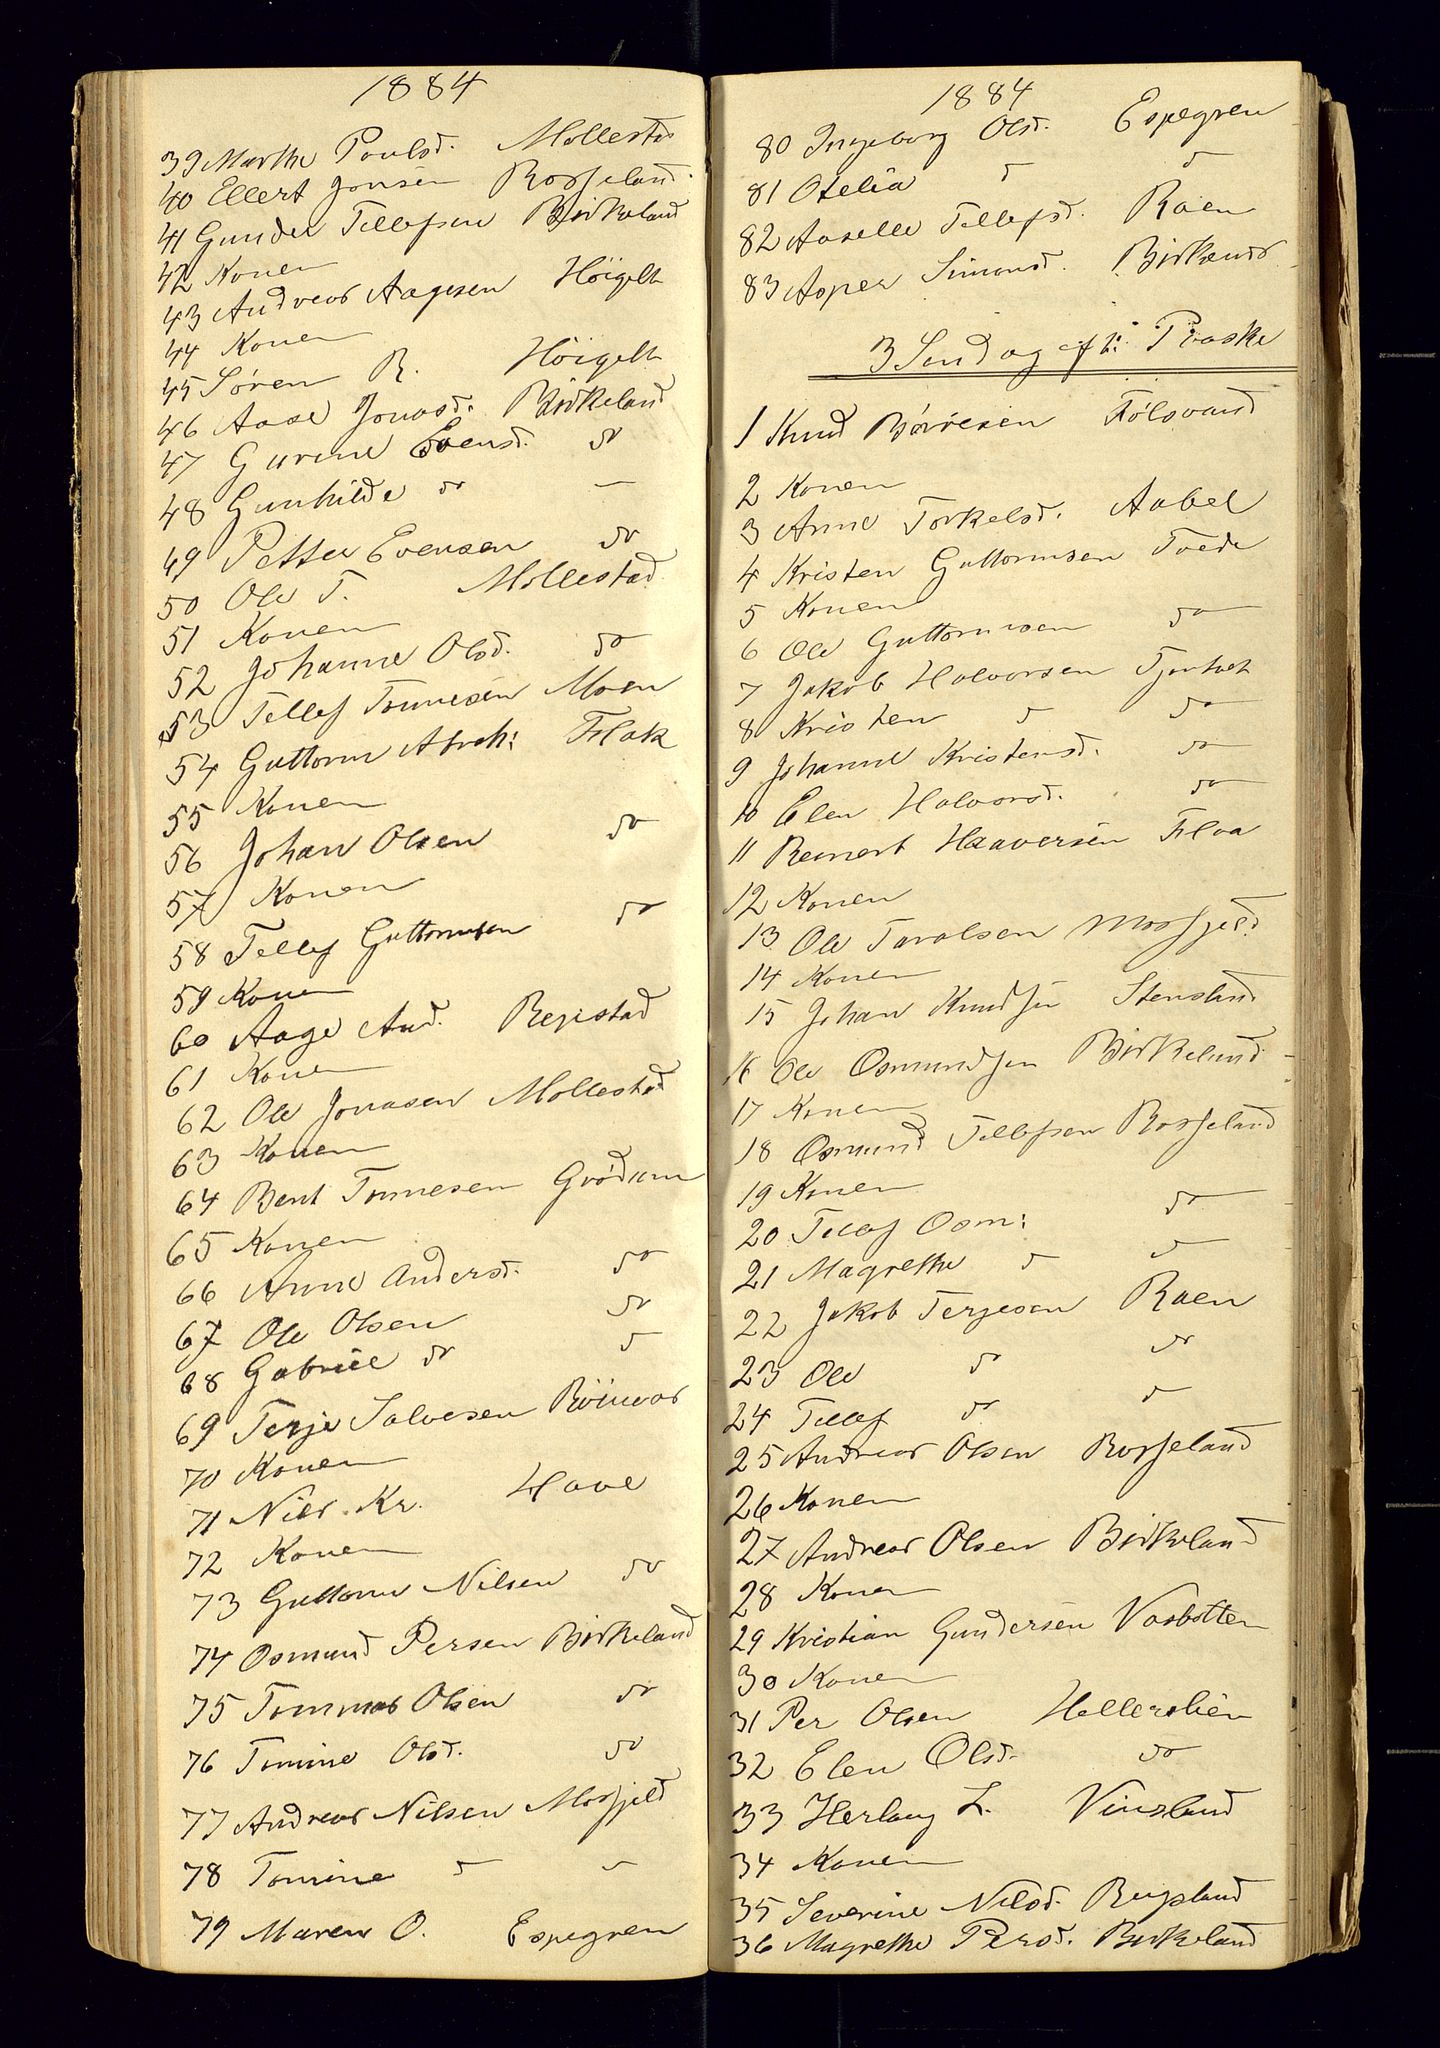 1884
39 Marthe Poulsd. Mollestad
40 Ellert Jonsen Rosseland
41 Gunder Tellefsen Birkeland
42 Konen
43 Andreas Aagesen Höigelt
44 Konen
45 Søren R. Höigelt
46 Aase Jonasd. Birkeland
47 Gurine Evensd. do
48 Gunhilde do —
49 Petter Evensen do
50 Ole T. Mollestad
51 Konen
52 Johanne Olsd. do
53 Tellef Tønnesen Moen
54 Guttorm Abrah: Flak
55 Konen
56 Johan Olsen do
57 Konen
58 Tellef Guttormsen do
59 Konen
60 Aage And. Registad
61 Konen
62 Ole Jonasen Mollestad
63 Konen
64 Bent Tønnesen Grödum
65 Konen
66 Anne Andersd. do
67 Ole Olsen do
68 Gabriel do d
69 Terje Salvesen
70 Konen
71 Nils Kr. Have
72 Konen
73 Guttorm Nilsen do
74 Osmund Persen Birkeland
75 Tommas Olsen do
76 Tomine Olsd. do
77 Andreas Nilsen Mosfjeld
78 Tomine d —
79 Maren O. Espegren
1884
80 Ingeborg Olsd. Espegren
81 Otelia d d
82 Aaselle Tellefsd. Raen
83 Asper Simonsd. Birkeland
3 Søndag eft: Paaske
1 Knud Børresen Fölsvand
2 Konen
3 Anne Torkelsd. Aabel
4 Kristen Guttormsen Tvede
5 Konen
6 Ole Guttormsen do
7 Jakob Halvorsen
8 Kristen d do
9 Johanne Kristensd. do
10 Elen Halvorsd. do
11 Reinert Haaversen Flaa
12 Konen
13 Ole Taralsen Mosfjeld
14 Konen
15 Johan Knudsen Stensland
16 Ole Osmundsen Birkeland
17 Konen
18 Osmund Tellefsen Rosseland
19 Konen
20 Tellef Osm: do
21 Magrethe d d
22 Jakob Terjesen Raen
23 Ole do do
24 Tellef do d
25 Andreas Olsen Rosseland
26 Konen
27 Andreas Olsen Birkeland
28 Konen
29 Kristian Gundersen Vasbotten
30 Konen
31 Per Olsen Hellerslien
32 Elen Olsd. do
33 Herlaug L. Vinsland
34 Konen
35 Severine Nilsd. Reigsland
36 Magrethe Persd. Birkeland